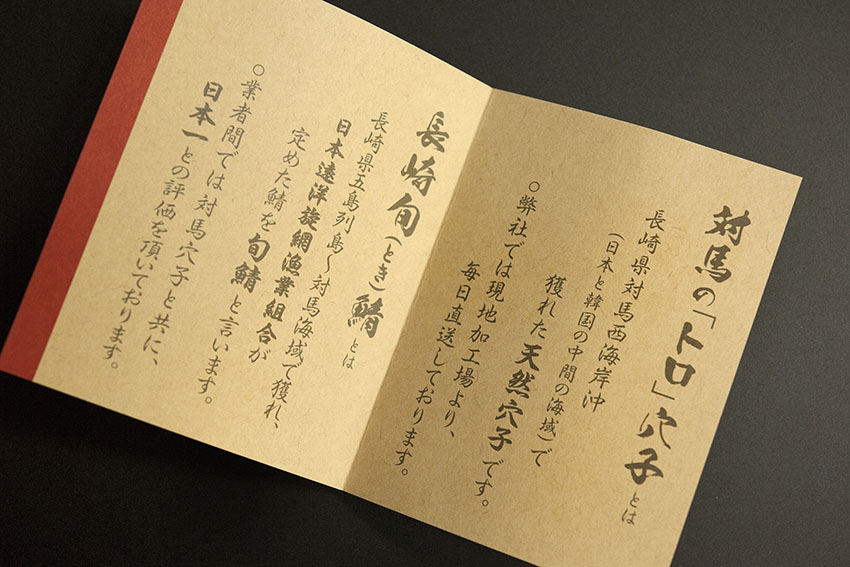 対馬の「トロ」穴子とは
長崎県対馬西海岸沖
(日本と韓国の中間の海域)で
獲れた天然穴子です。
○弊社では現地加工場より、
毎日直送しております。
長崎旬(とき)鯖とは
長崎県五島列島〜対馬海域で獲れ、
日本遠洋旋網漁業組合が
定めた鯖を旬鯖と言います。
○業者間では対馬穴子と共に、
日本一との評価を頂いております。